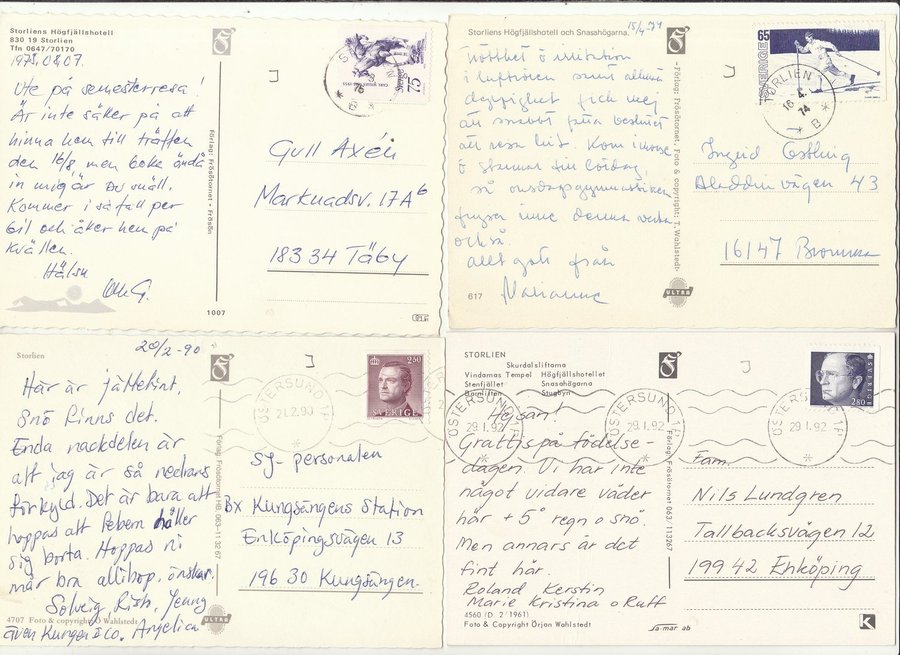 Storliens Högfjällshotell
830 19 Storlien
Tfn 0647/70170
Ute på semesterresa!
Är inte säker på att
hinna hem till träffen
den 16/8, men boka ändå
in mig är Du snäll.
Kommer i så fall per
bil och åker hem på
kvällen.
Hälsn
Förlag: Frösötornet - Frösön
75
Gull Axén
Marknadsv. 17A6
183 34 Täby
1007
Storliens Högfjällshotell och Snasahögarna.
15/4-74
Trötthet o irritation
i luftrören samt allmän
fick mej
att snabbt fatta beslutet
att resa hit. Kom i
o stannar till lördag,
så onsdagsgymnastiken
fryser inne denna vecka
också.
Allt gott från
Marianne
617
Förlag: Frösötornet. Foto & copyright: T. Wahlstedt
ULTRA
65
SVERIGE
STORLIEN 1
16.4.74
B
Ingrid Östling
Aladdinsvägen 43
161 47 Bromma
Storlien
20/2-90
Här är jättefint.
Snö finns det.
Enda nackdelen är
att jag är så nedrans
förkyld. Det är bara att
hoppas att febern håller
sig borta. Hoppas ni
mår bra allihop, önskar
Solveig, Rish, Jenny
även Kungen & Co. Angelica
4707 Foto & copyright Ö Wahlstedt
Förlag: Frösötornet HB. 063-11 32 67
ULTRA
ÖSTERSUND
21.2.90
2.50
SVERIGE
SJ-personalen
Bx Kungsängens Station
Enköpingsvägen 13
196 30 Kungsängen.
STORLIEN
Skurdalsliftarna
Vindarnas Tempel Högfjällshotellet
Stenfjället Snasahögarna
Barnliften Stugbyn
Hejsan!
Grattis på födelse-
dagen. Vi har inte
något vidare väder
här +5° regn o snö.
Men annars är det
fint här.
Roland Kerstin
Marie Kristina o Ruff
4560 (D. 2/1961)
Foto & Copyright Örjan Wahlstedt
Förlag: Frösötornet 063/113267
Sa-mar ab
ÖSTERSUND 1F
29.1.92
ÖSTERSUND 1F
29.1.92
ÖSTERSUND 1F
29.1.92
2.80
SVERIGE
Fam.
Nils Lundgren
Tallbacksvägen 12
199 42 Enköping
K